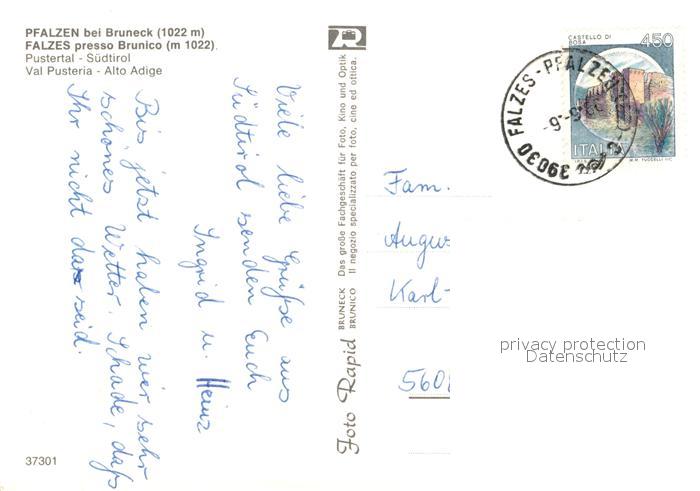 PFALZEN bei Bruneck (1022 m)
FALZES presso Brunico (m 1022).
Pustertal - Südtirol
Val Pusteria - Alto Adige
Viele liebe Grüße aus
Südtirol senden Euch
Ingrid u. Heinz
Bis jetzt haben wir sehr
schönes Wetter. Schade, daß
Ihr nicht da seid.
37301
Foto Rapid
BRUNECK
BRUNICO
Das große Fachgeschäft für Foto, Kino und Optik
Il negozio specializzato per foto, cine ed ottica.
CASTELLO DI
BOSA
450
ITALIA
39030 FALZES-PFALZEN
Fam.
Augu
Karl-
560
privacy protection
Datenschutz